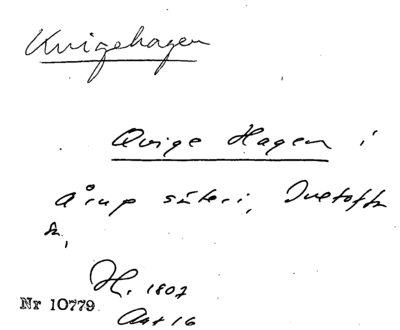 Kvigehagen
Qvige Hagen i
Årup säteri, Ivetofta
sn,
H. 1807
Akt 16
Nr 10779